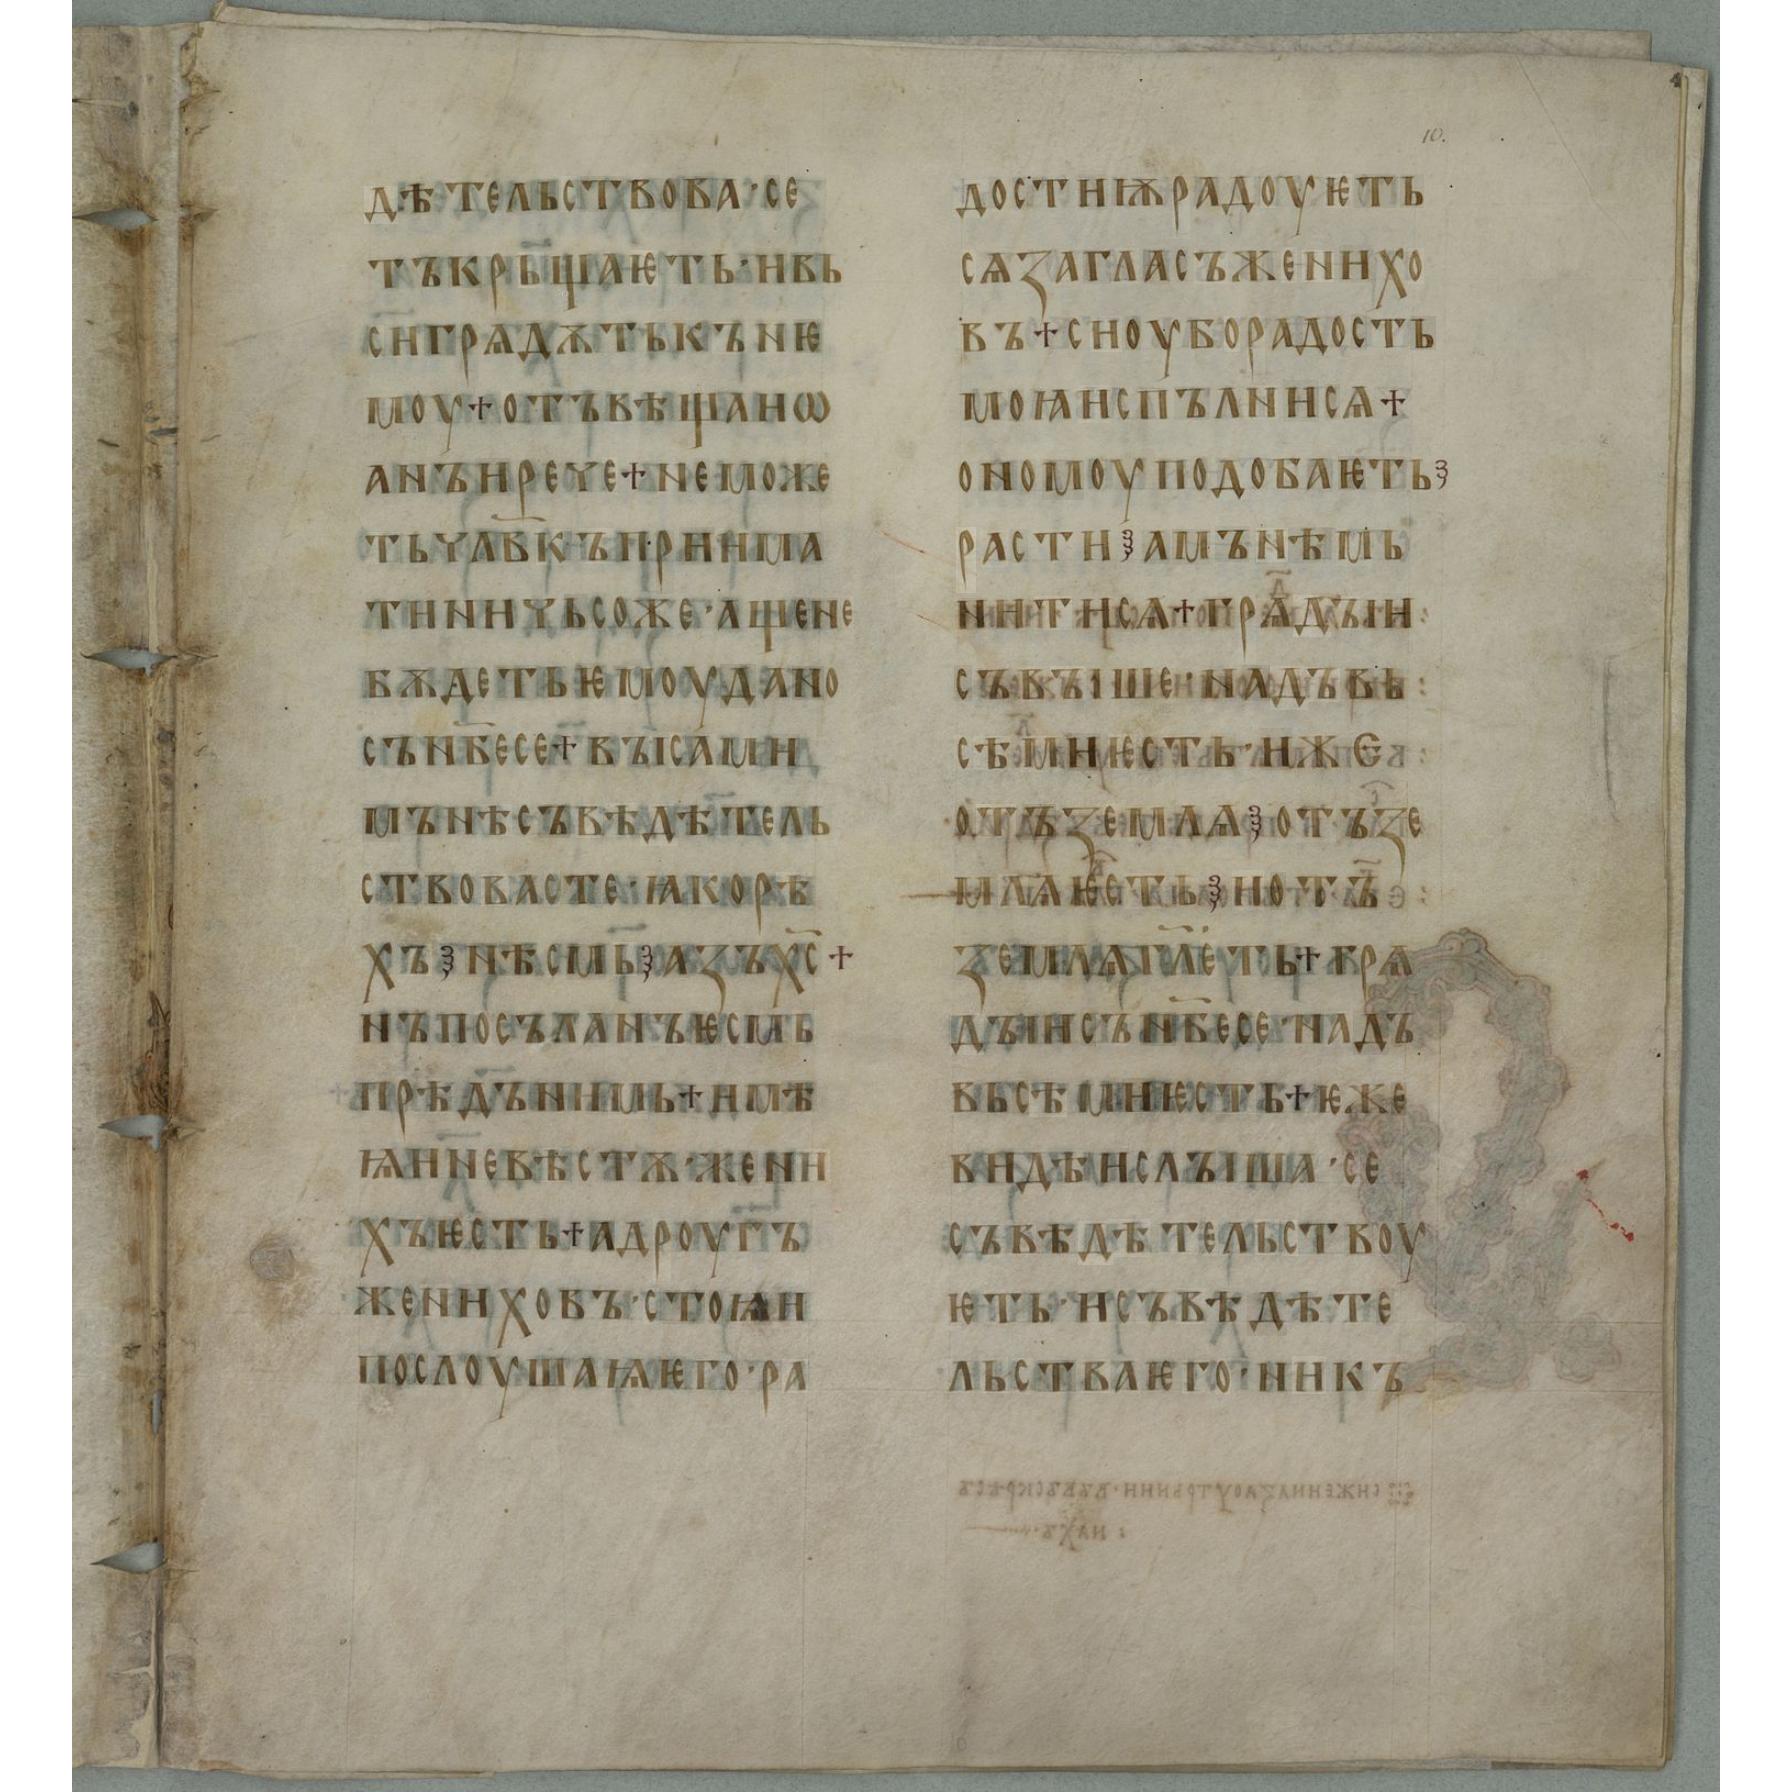 10.
дѣтельствова·се
тъкрьщаѥть·ивь
си҃грѧдѫтькънѥ
моу+отъвѣщаиѡ
анъирече+неможе
тьчл҃вкъприима
тиничьсоже·ащене
бѫдетьѥмоудано
сън҃бесе+въісами
мънѣсъвѣдѣтель
ствовасте·ꙗкорѣ
хъꙁнѣсмьꙁаꙁъхс҃+
нъпосъланъѥсмь
прѣдънимь+имѣ
ꙗиневѣстѫ·жени
хъѥсть+адроугъ
женихов̾ъ·стоѩи
послоушаѩѥго·ра
достиѭрадоуѥть
сѧꙁагласъженихо
въ+сиоуборадость
моꙗиспълнисѧ+
ономоуподобаѥтьꙁ
растиꙁамънѣмь
нитисѧ+грѧдъіи
съвъіше·надъвь
сѣмиѥсть·иже
отъꙁемлѧꙁотъꙁе
млѧѥстьꙁиотъ
ꙁемлѧгл҃еть+грѧ
дъіисън҃бесе·надъ
вьсѣмиѥсть+ѥже
видѣислъіша·се
съвѣдѣтельствоу
ѥть·исъвѣдѣте
льстваѥго·никъ